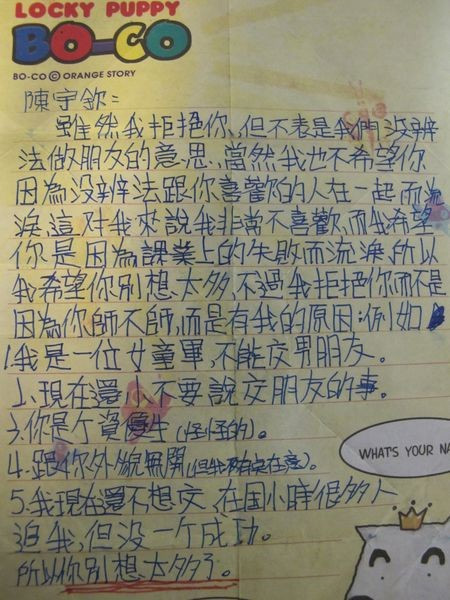 LOCKY PUPPY
BO-CO
BO-CO © ORANGE STORY
陳守欽:
雖然我拒絕你,但不表是我們沒辦
法做朋友的意思,當然我也不希望你
因為沒辦法跟你喜歡的人在一起而流
淚,這对我來說我非常不喜歡,而我希望
你是因為課業上的失敗而流淚,所以
我希望你別想太多,不過我拒絕你而不是
因為你師不師,而是有我的原因:例如
1.我是一位女童軍,不能交男朋友。
2.現在還小,不要說交朋友的事。
3.你是个資優生(怪怪的)。
4.跟你外貌無關(但我有在意)。
5.我現在還不想交,在国小時很多人
追我,但没一个成功。
所以你別想太多了。
WHAT'S YOUR NA